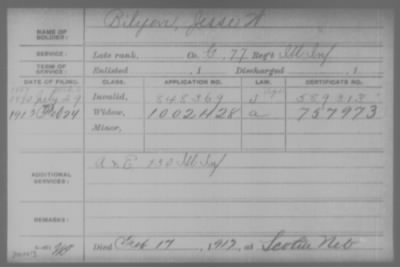 NAME OF SOLDIER: Bilyeu, Jesse W
SERVICE: Late rank, Co. G, 77 Reg't Ill Inf
TERM OF SERVICE: Enlisted , 1 Discharged , 1
DATE OF FILING. CLASS. APPLICATION NO. LAW. CERTIFICATE NO.
Invalid, 848369 J 589313
1913 Feb 24 Widow, 1002428 a 757973
Minor,
ADDITIONAL SERVICES: A & E 130 Ill Inf
REMARKS:
Died Feb 17, 1913, at Scotia Neb